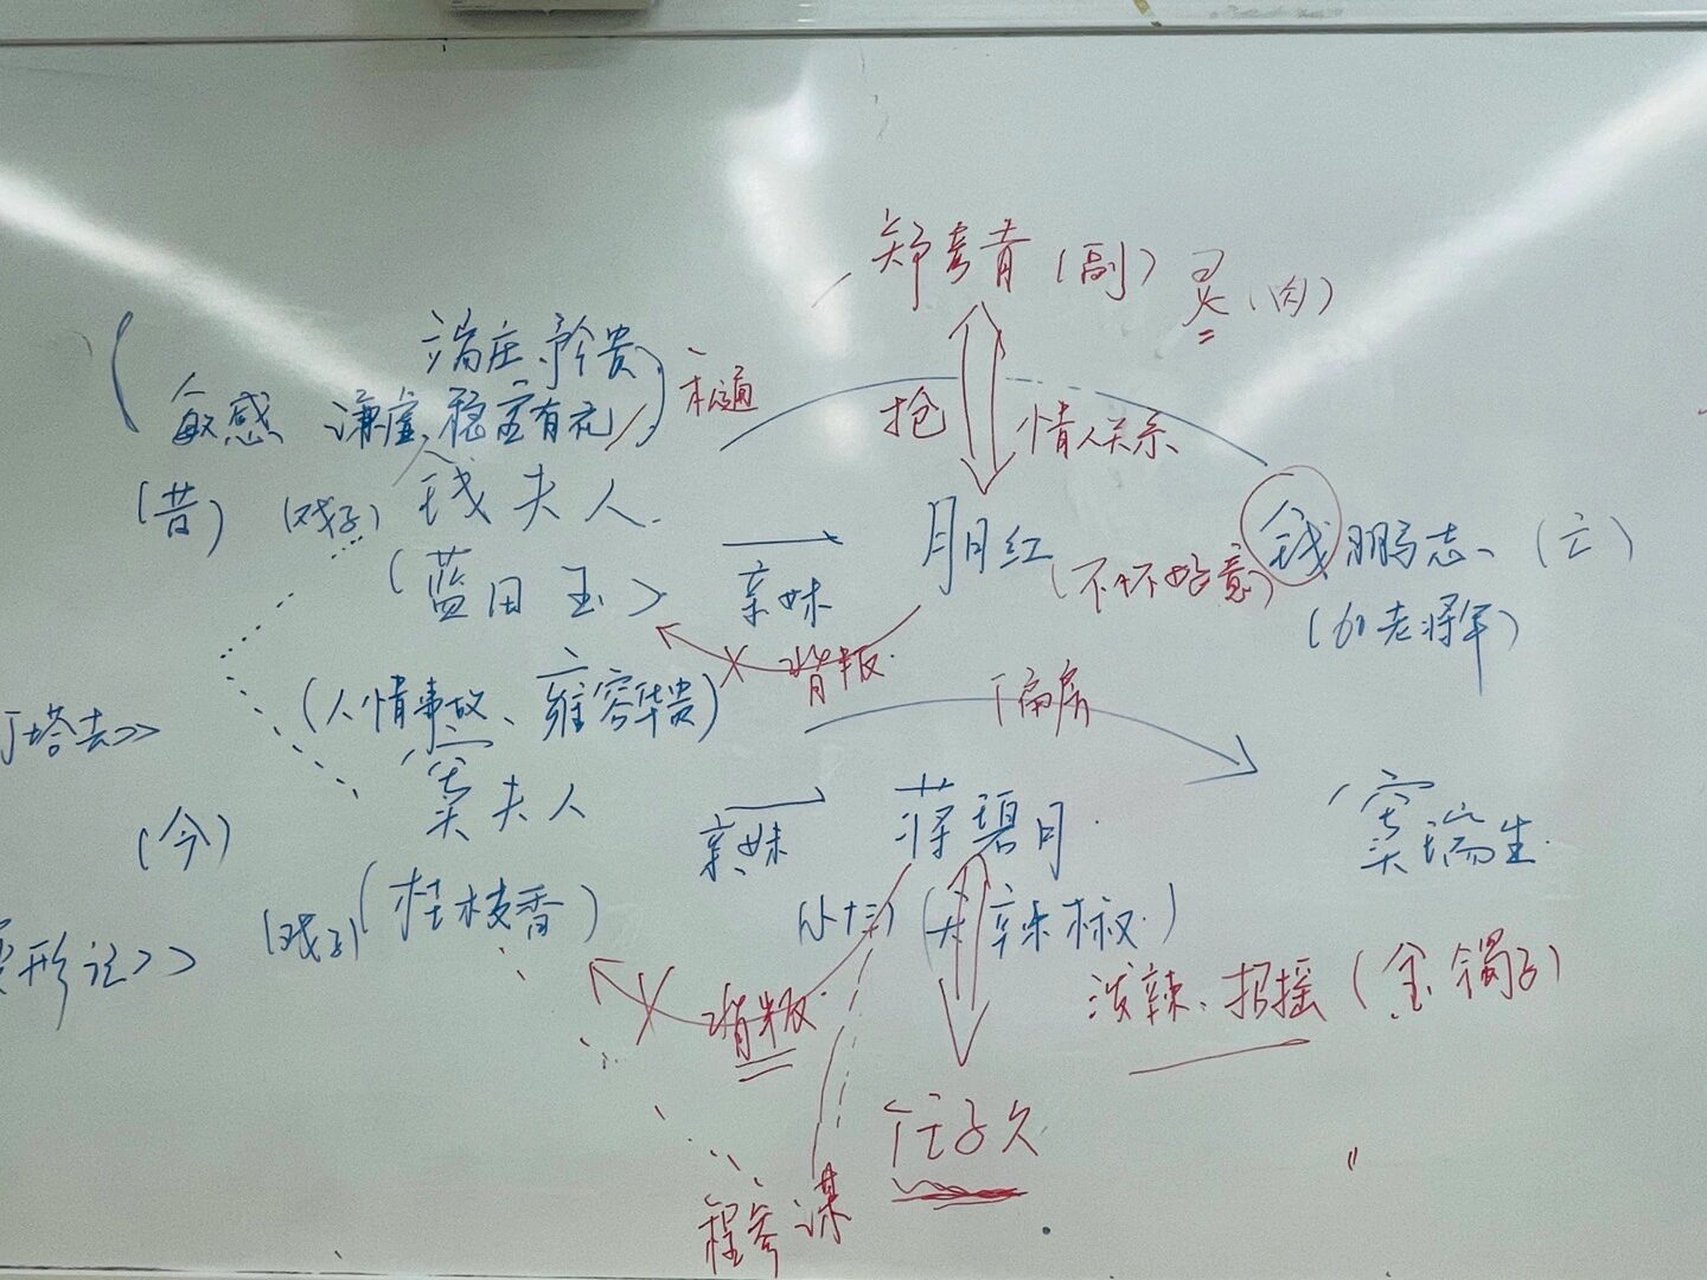 郑彦青(副) 灵(肉)
端庄、矜贵
敏感 谦虚、稳定有礼
抢
情人关系
(昔) (戏子) 钱夫人
月月红
钱鹏志、(亡)
(蓝田玉)
亲妹
(不怀好意)
(60老将军)
背叛
(人情事故、雍容华贵)
偏房
塔去>>
窦夫人
(今)
亲妹
蒋碧月
窦瑞生
形记>> (戏子) (桂枝香)
(小十三) (天辣椒)
泼辣、招摇(金镯子)
背叛
任子久
程参谋